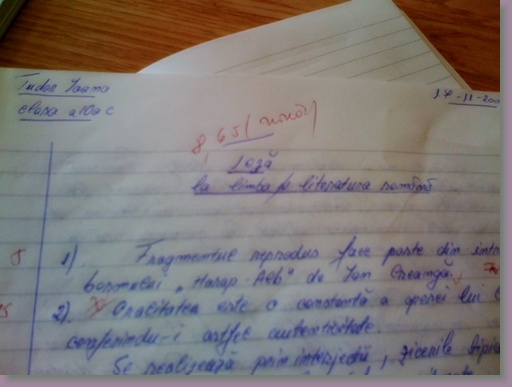 Tudor Ioana
17-11-200
clasa a10a C
8,65 (nouă)
Teză
la limba și literatura română
1) Fragmentul reprodus face parte din
basmului „Harap Alb" de Ion Creangă.
2) Oralitatea este o constantă a operei lui
conferindu-i astfel autenticitate.
Se realizează prin interjecții, zicerile tipice